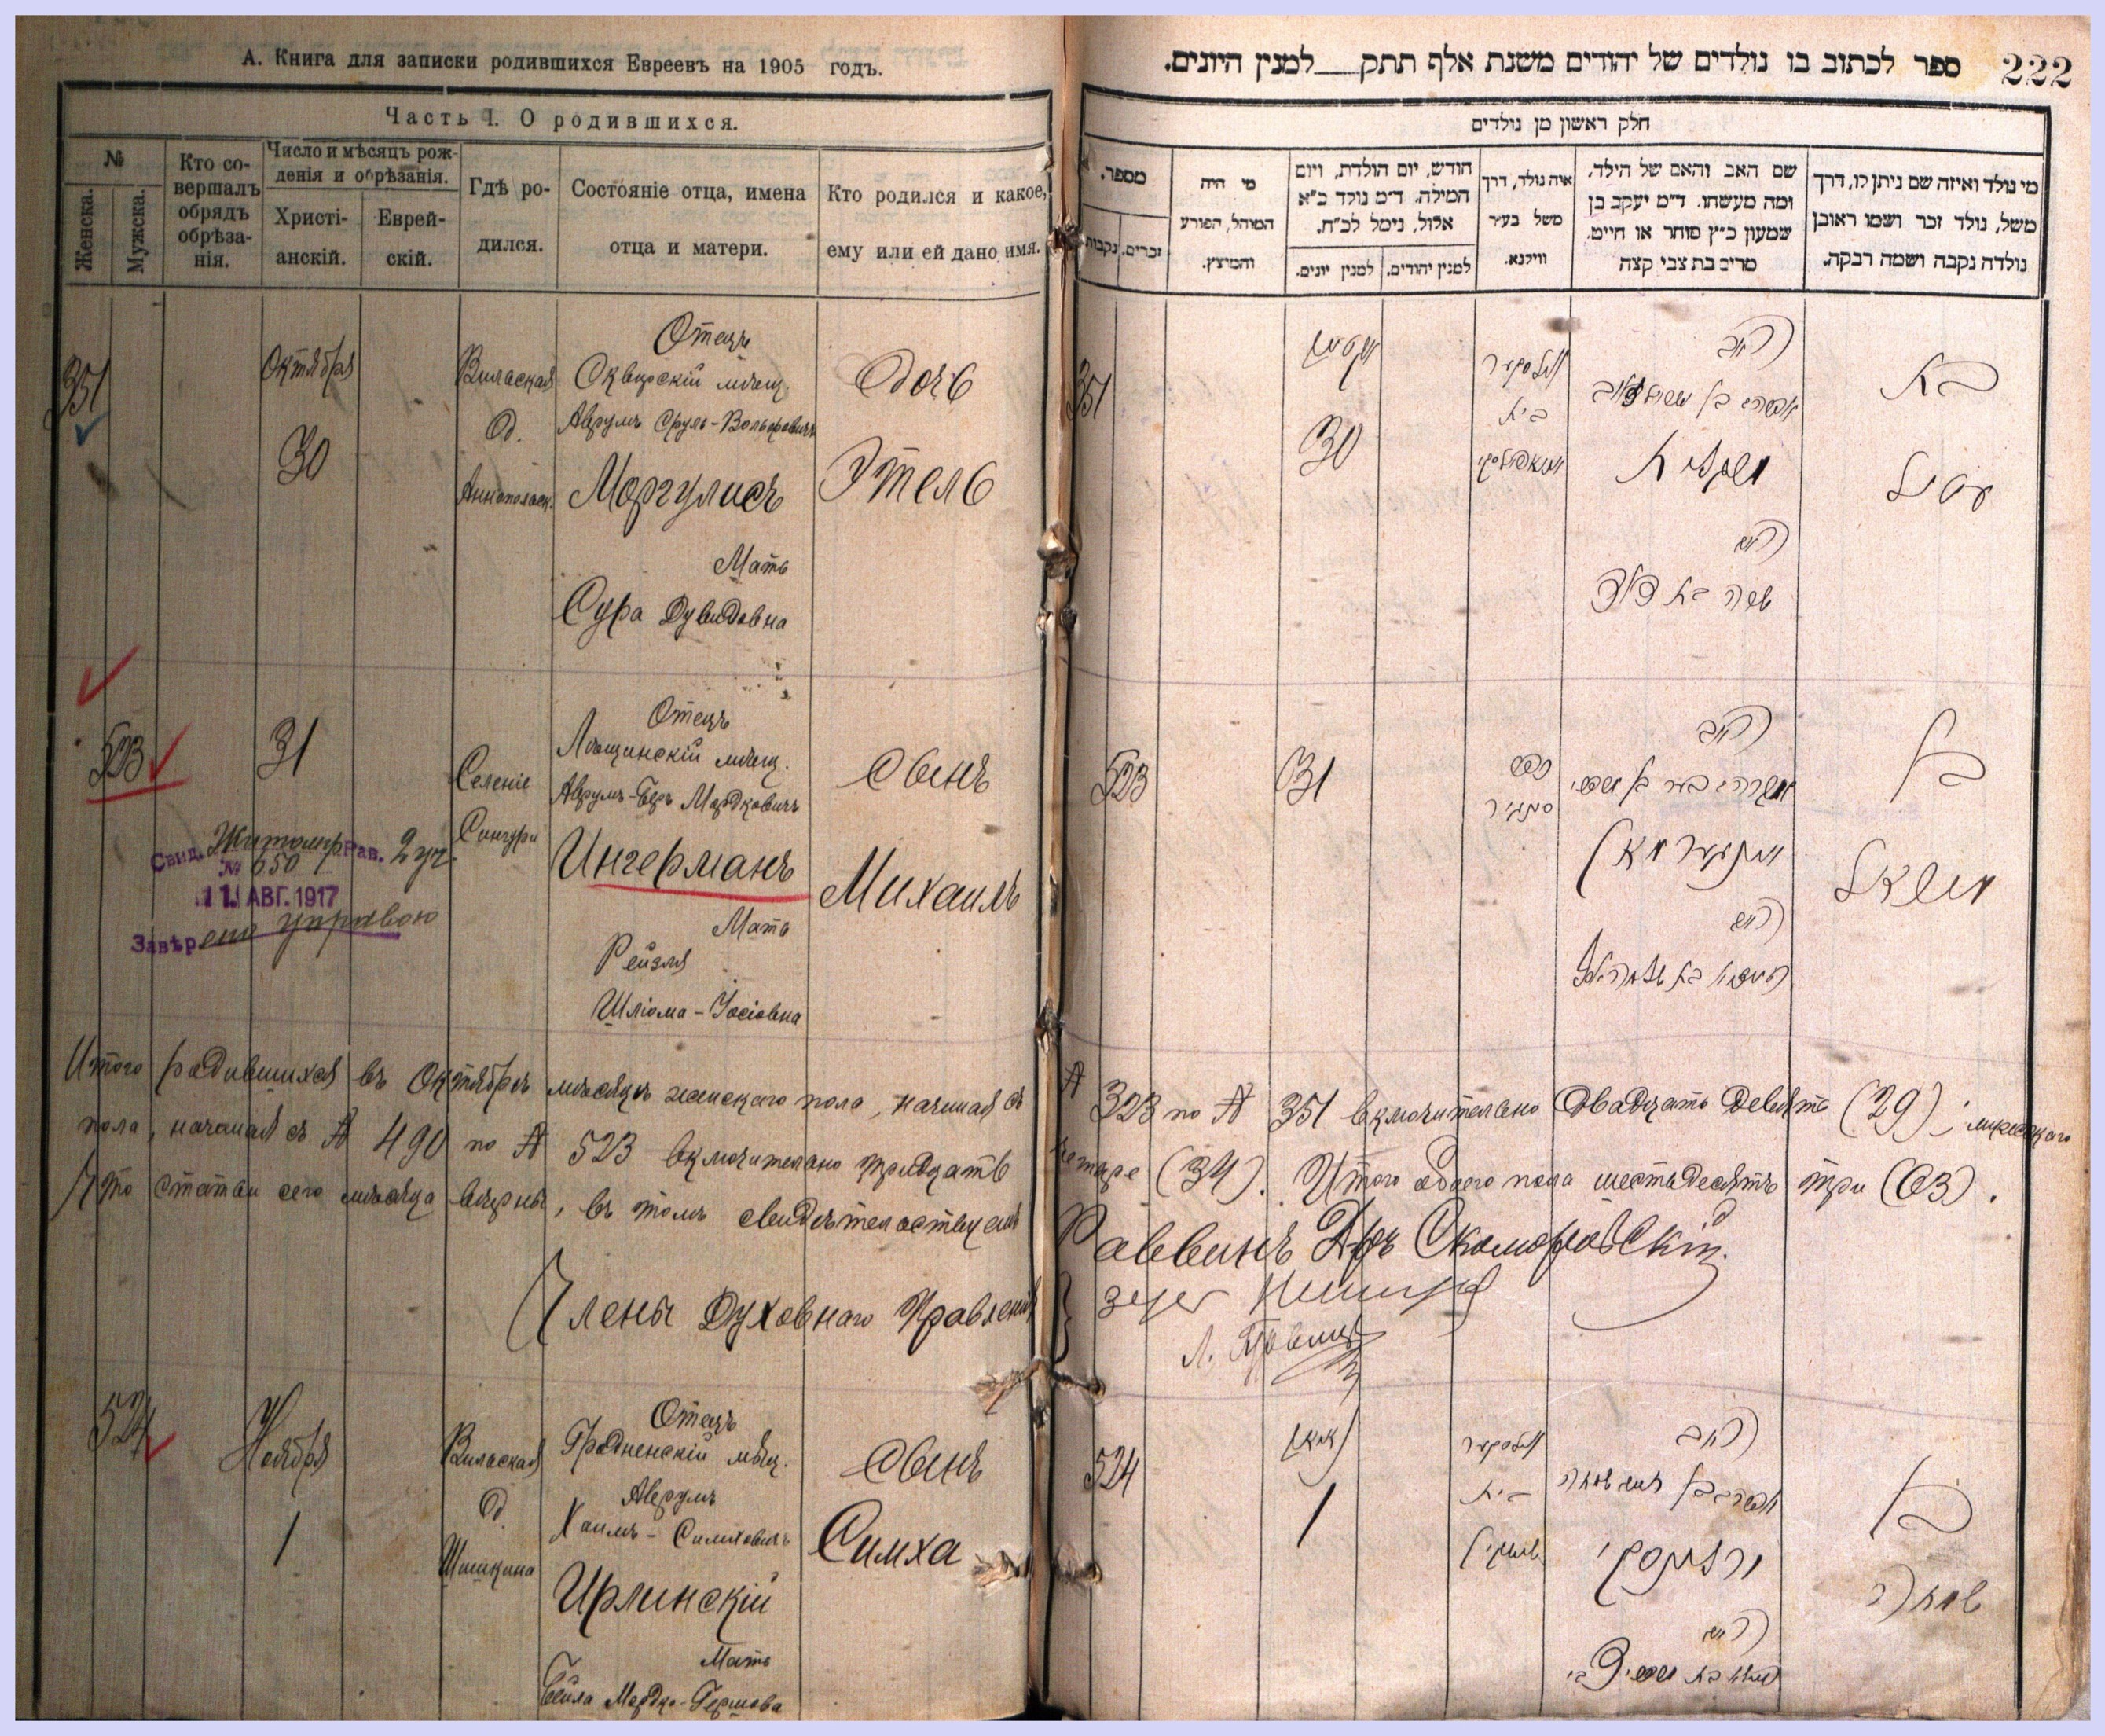 А. Книга для записки родившихся Евреевъ на 1905 годъ.
Часть I. О родившихся.
№
Женска.
Мужска.
Кто со-
вершалъ
обрядъ
обрѣза-
нія.
Число и мѣсяцъ рож-
денія и обрѣзанія.
Христі-
анскій.
Еврей-
скій.
Гдѣ ро-
дился.
Состояніе отца, имена
отца и матери.
Кто родился и какое,
ему или ей дано имя.
351
Октября
30
Вильская
Отецъ
Сквирскій мѣщ.
Аврумъ Сруль-Вольфовичъ
Моргулисъ
Мать
Сура Дувидовна
Дочь
Этель
523
31
Селеніе
Сингури
Отецъ
мѣщ.
Аврумъ-Беръ Мордковичъ
Ингерманъ
Мать
Рейзля
Шліома-Іосіовна
Сынъ
Михаилъ
Свид. Житомир Рав. 2 уч.
№ 650
11 АВГ. 1917
Завѣрено управою
Итого родившихся въ Октябрѣ мѣсяцѣ женскаго пола, начиная съ
пола, начиная съ № 490 по № 523 включительно тридцать
Что статьи сего мѣсяца вѣрны, въ томъ свидѣтельствуемъ
Члены Духовнаго Правленія
524
Ноября
1
Вильская
Шишкина
Отецъ
Гродненскій мѣщ.
Аврумъ
Хаимъ-Симховичъ
Ирлинскій
Мать
Бейла Мордко-Гершова
Сынъ
Симха
222
ספר לכתוב בו נולדים של יהודים משנת אלף תתק__למנין היונים.
חלק ראשון מן נולדים
מספר.
זכרים.
נקבות
מי היה
המוהל, הפורע
והמוצץ.
חודש, יום הולדת, ויום
המילה. ד״מ נולד כ״א
אלול, נימל לכ״ח.
למנין יהודים.
למנין יונים.
איה נולד, דרך
משל בעיר
ווילנא.
שם האב והאם של הילד.
ומה מעשהו. ד״מ יעקב בן
שמעון כ״ץ סוחר או חייט.
מרים בת צבי קצה
מי נולד ואיזה שם ניתן לו, דרך
משל, נולד זכר ושמו ראובן
נולדה נקבה ושמה רבקה.
351
30
האב
האם
שרה בת דוד
בת
עטיל
523
31
האב
אינגערמאן
האם
בן
מיכאל
№ 323 по № 351 включительно двадцать девять (29); мужскаго
четыре (34). Итого обоего пола шестьдесятъ три (63).
Раввинъ Д-ръ Скоморовскій
524
1
האב
האם
בן
שמחה